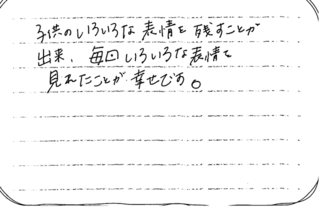 子供のいろいろな表情を残すことが
出来、毎回いろいろな表情を
見れたことが幸せです。